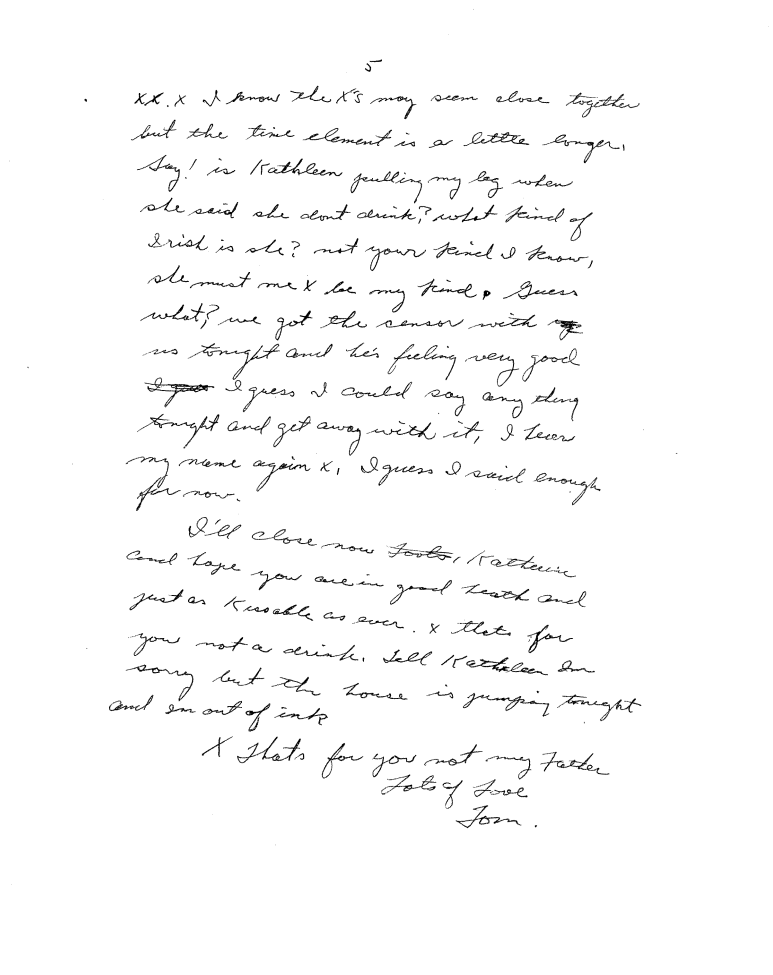 5
XX. X I know the X's may seem close together
but the time element is a little longer.
Say! is Kathleen pulling my leg when
she said she dont drink? what kind of
Irish is she? not your kind I know,
she must me X be my kind. Guess
what? we got the censor with
us tonight and he's feeling very good
I guess I could say any thing
tonight and get away with it, I hear
my name again X, I guess I said enough
for now.
I'll close now Toots, Katherine
and hope you are in good heath and
just as Kissable as ever. X thats for
you not a drink. Tell Kathleen Im
sorry but the house is jumping tonight
and Im out of ink
X Thats for you not my Father
Lots of Love
Tom.